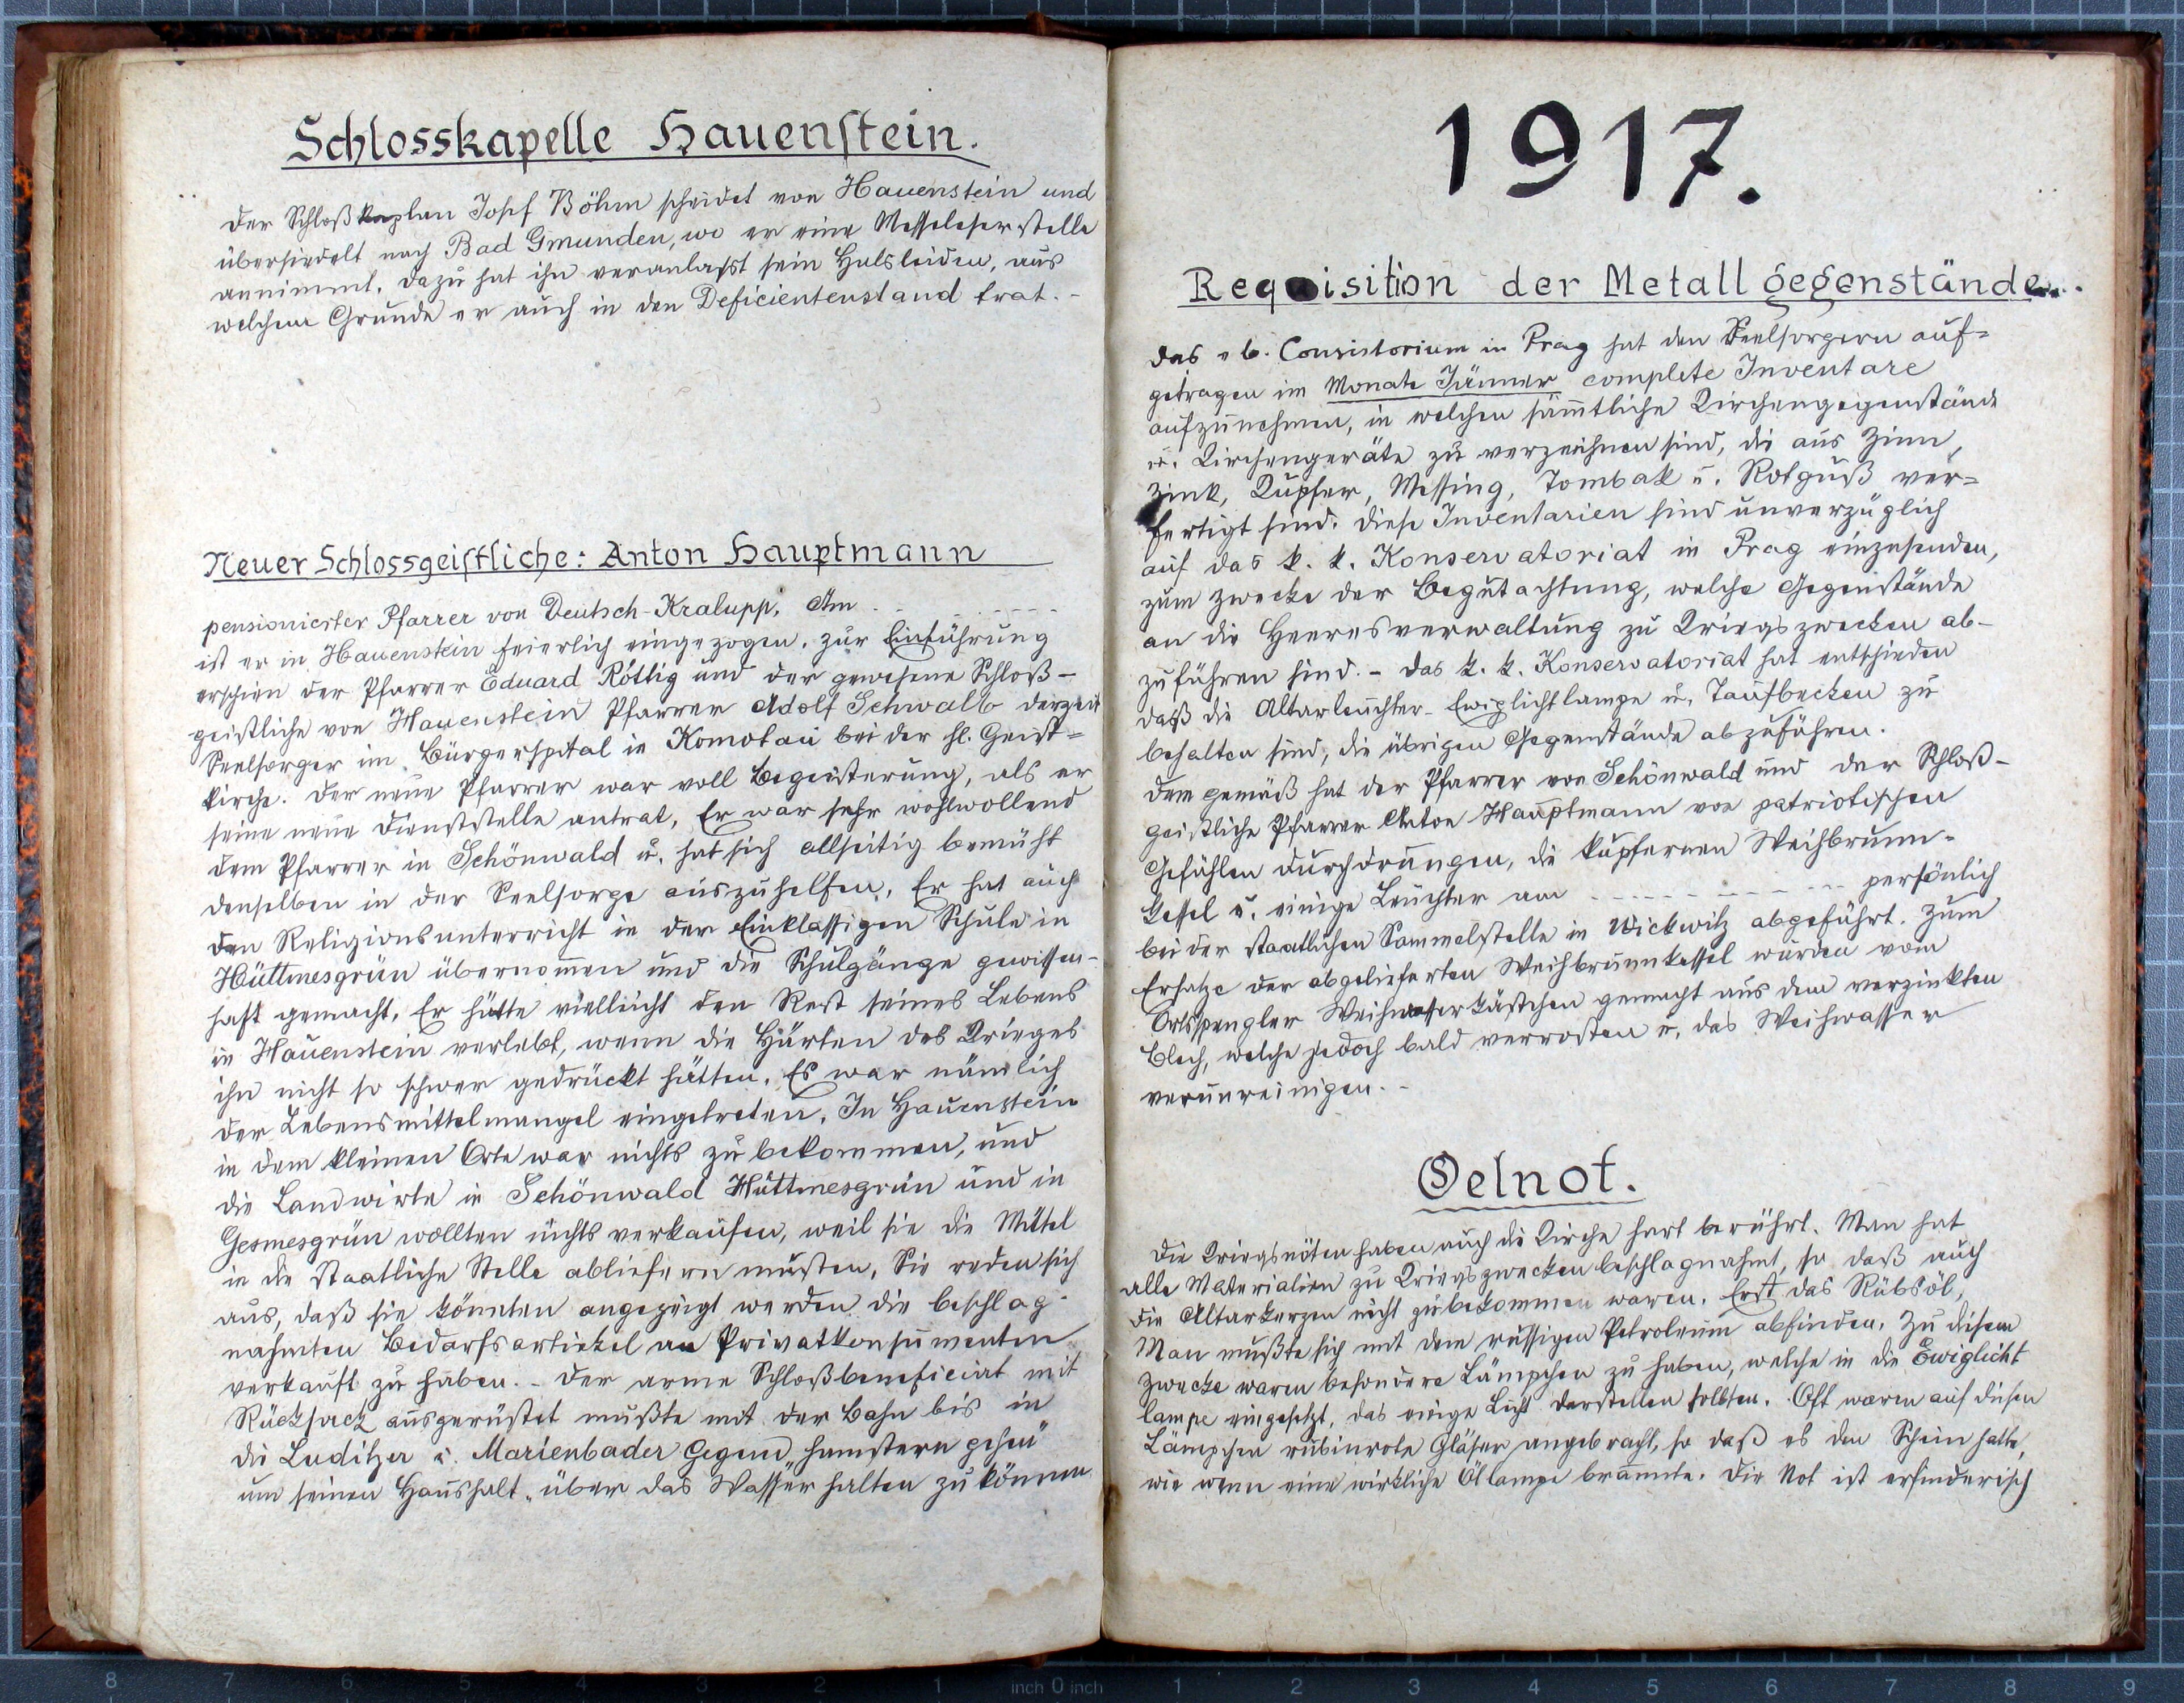 Schlosskapelle Hauenstein.
Der Schloßkaplan Josef Böhm scheidet von Hauenstein und
übersiedelt nach Bad Gmunden, wo er eine Messeleserstelle
annimmt. Dazu hat ihn veranlaßt sein Halsleiden, aus
welchem Grunde er auch in den Deficientenstand trat. -
Neuer Schlossgeistliche: Anton Hauptmann
pensionierter Pfarrer von Deutsch-Kralupp. Am - - - - - - -
ist er in Hauenstein feierlich eingezogen. Zur Einführung
erschien der Pfarrer Eduard Röttig und der gewesene Schloß-
geistliche von Hauenstein Pfarrer Adolf Schwalb derzeit
Seelsorger im Bürgerspital in Komotau bei der hl. Geist=
kirche. Der neue Pfarrer war voll Begeisterung, als er
seine neue Dienststelle antrat, Er war sehr wohlwollend
dem Pfarrer in Schönwald u. hat sich allseitig bemüht
denselben in der Seelsorge auszuhelfen. Er hat auch
den Religionsunterricht in der Einklassigen Schule in
Hüttmesgrün übernomen und die Schulgänge gewissen-
haft gemacht. Er hätte vielleicht den Rest seines Lebens
in Hauenstein verlebt, wenn die Härten des Krieges
ihn nicht so schwer gedrückt hätten. Es war nämlich
der Lebensmittelmangel eingetreten. In Hauenstein
in dem kleinen Orte war nichts zu bekommen, und
die Landwirte in Schönwald Hüttmesgrün und in
Gesmesgrün wollten nichts verkaufen, weil sie die Mittel
in die staatliche Stelle abliefern mußten. Sie reden sich
aus, daß sie könnten angezeigt werden die beschlag-
nahmten Bedarfsartikel an Privatkonsumenten
verkauft zu haben. - Der arme Schloßbeneficiat mit
Rücksack ausgerüstet mußte mit der Bahn bis in
die Luditzer u. Marienbader Gegend „hamstern gehen"
um seinen Haushalt „über das Wasser" halten zu können
1917.
Requisition der Metallgegenstände.
Das e b. Consistorium in Prag hat den Seelsorgern auf=
getragen im Monate Jänner complete Inventare
aufzunehmen, in welchen sämtliche Kirchengegenstände
u. Kirchengeräte zu verzeichnen sind, die aus Zinn,
Zink, Kupfer, Messing, Tombak u. Rotguß ver=
fertigt sind. Diese Inventarien sind unverzüglich
auf das k. k. Konservatoriat in Prag einzusenden,
zum Zwecke der Begutachtung, welche Gegenstände
an die Heeresverwaltung zu Kriegszwecken ab-
zuführen sind. - Das k. k. Konservatoriat hat entschieden
daß die Altarleuchter- Ewiglichtlampe u. Taufbecken zu
behalten sind, die übrigen Gegenstände abzuführen.
Dem gemäß hat der Pfarrer von Schönwald und der Schloß-
geistliche Pfarrer Anton Hauptmann von patriotischen
Gefühlen durchdrungen, die kupfernen Weihbrunn-
Kessel u. einige Leuchter am - - - - - - - - - - persönlich
bei der staatlichen Sammelstelle in Wickwitz abgeführt. Zum
Ersatze der abgelieferten Weihbrunnkessel wurden vom
Ortsspengler Weihwasserkästchen gemacht aus dem verzinkten
Blech, welche jedoch bald verrosten u. das Weihwasser
verunreinigen. -
Oelnot.
Die Kriegsnöten haben auch die Kirche hart berührt. Man hat
alle Materialien zu Kriegszwecken beschlagnahmt, so daß auch
die Altarkerzen nicht zu bekommen waren. Erst das Rübsöl,
Man mußte sich mit dem russigen Petroleum abfinden. Zu disem
Zwecke waren besondere Lämpchen zu haben, welche in die Ewiglicht
lampe eingesetzt, das ewige Licht darstellen sollten. Oft waren auf diesen
Lämpchen rubinrote Gläser angebracht, so daß es den Schein hatte,
wie wenn eine wirkliche Öllampe brannte. Die Not ist erfinderisch